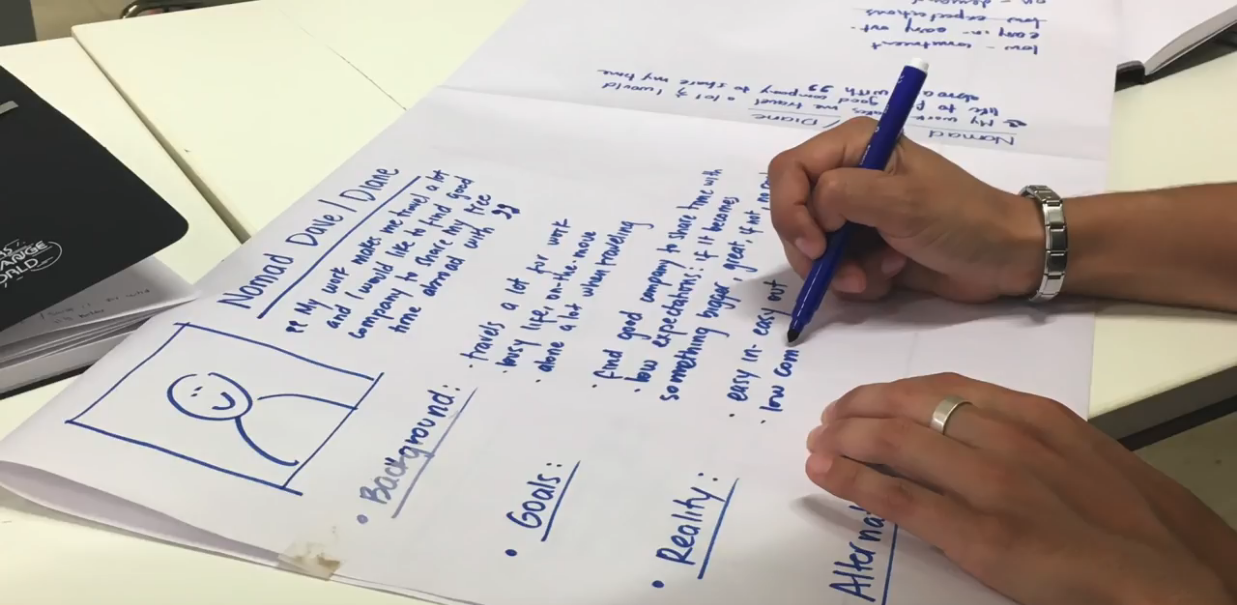 Nomad Dave / Diane
“ My work makes me travel a lot
and I would like to find good
company to share my free
time abroad with ”
• Background:
· travels a lot for work
· busy life, on-the-move
· alone a lot when traveling
• Goals:
· find good company to share time with
· low expectations: if it becomes
sommething bigger, great, if not, no
• Reality:
· easy in- easy out
· low com
Nomad / Diane
“ My work makes me travel a lot & I would
like to good company to share my time
abroad with ”
low - comitment
easy in - easy out -
low expectations
on - demand
CHANGE
WORLD